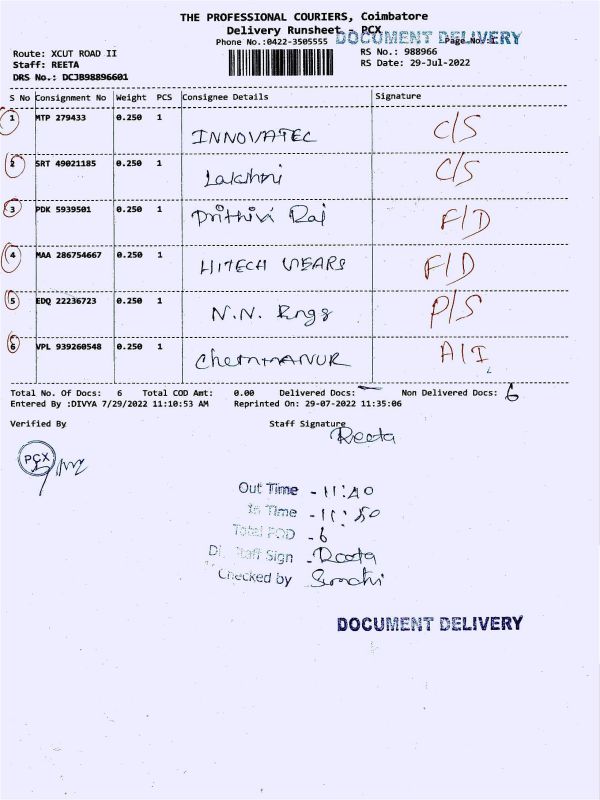 THE PROFESSIONAL COURIERS, Coimbatore
Delivery Runsheet - PCX
DOCUMENT DELIVERY
Phone No.:0422-3505555 Page No.:1
Route: XCUT ROAD II RS No.: 988966
Staff: REETA RS Date: 29-Jul-2022
DRS No.: DCJB98896601
S No Consignment No Weight PCS Consignee Details Signature
1 MTP 279433 0.250 1 INNOVATEC C/S
2 SRT 49021185 0.250 1 Lakshmi C/S
3 PDK 5939501 0.250 1 Prithivi Raj F/D
4 MAA 286754667 0.250 1 HITECH WEARS F/D
5 EDQ 22236723 0.250 1 N.N. Engg P/S
6 VPL 939260548 0.250 1 ChemmANUR A/I
Total No. Of Docs: 6 Total COD Amt: 0.00 Delivered Docs: — Non Delivered Docs: 6
Entered By :DIVYA 7/29/2022 11:10:53 AM Reprinted On: 29-07-2022 11:35:06
Verified By Staff Signature
Reeta
PCX
Out Time - 11:40
In Time - 11:50
Total POD - 6
Staff Sign - Reeta
Checked by
DOCUMENT DELIVERY